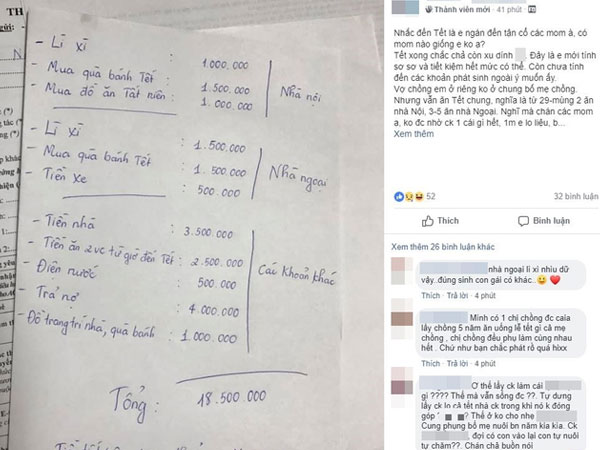 TH
gửi:
- Lì xì : 1.000.000
- Mua quà bánh Tết : 1.500.000
- Mua đồ ăn Tất niên : 1.000.000
Nhà nội
- Lì xì : 1.500.000
- Mua quà bánh Tết : 1.500.000
- Tiền xe : 500.000
Nhà ngoại
- Tiền nhà : 3.500.000
- Tiền ăn 2vc từ giờ đến Tết : 2.500.000
- Điện nước : 500.000
- Trả nợ : 4.000.000
- Đồ trang trí nhà, quà bánh : 1.000.000
Các khoản khác
Tổng : 18.500.000
Thành viên mới · 41 phút ·
Nhắc đến Tết là e ngán đến tận cổ các mom à, có
mom nào giống e ko ạ?
Tết xong chắc chả còn xu dính. Đây là e mới tính
sơ sơ và tiết kiệm hết mức có thể. Còn chưa tính
đến các khoản phát sinh ngoài ý muốn ấy.
Vợ chồng em ở riêng ko ở chung bố mẹ chồng.
Nhưng vẫn ăn Tết chung, nghĩa là từ 29-mùng 2 ăn
nhà Nội, 3-5 ăn nhà Ngoại. Nghĩ mà chán các mom
ạ, ko đc nhờ ck 1 cái gì hết, 1m e lo liệu, b...
Xem thêm
52
32 bình luận
Thích
Bình luận
Xem thêm 26 bình luận khác
nhà ngoại lì xì nhiu dữ
vậy..đúng sinh con gái có khác..
Thích · Trả lời · 4 phút
Mình có 1 chị chồng đc caia
lấy chồng 5 năm ăn uống lễ tết gì cả mẹ
chồng , chị chồng đều phụ làm cùng nhau
hết . Chứ như bạn chắc phát rồ quá hixx
Thích · Trả lời · 4 phút
Ơ thế lấy ck làm cái
gì ???? Thế mà vẫn sống đc ??. Tự dưng
lấy ck lo cả tết nhà ck trong khi nó k đóng
góp
Thế ở ko cho nhẹ
Cung phụng bố mẹ nuôi bn năm kia kìa. Ck
, đợi có con vào lại con tự nuôi
tự chăm??. Chán chả buồn nói